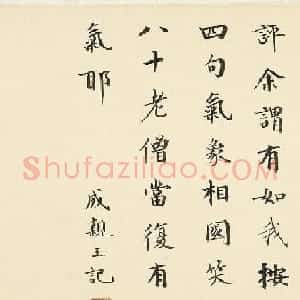 評余謂有如我按
四句氣象相國笑
八十老僧當復有
氣耶
成親王記
Shufaziliao.com